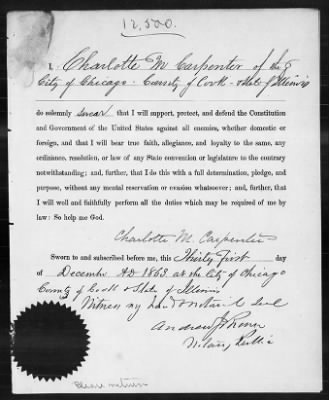 12,500.
I, Charlotte M Carpenter of the
City of Chicago County of Cook State of Illinois
do solemnly swear that I will support, protect, and defend the Constitution
and Government of the United States against all enemies, whether domestic
or foreign, and that I will bear true faith, allegiance, and loyalty to the same, any
ordinance, resolution, or law of any State convention or legislature to the contrary
notwithstanding; and, further, that I do this with a full determination, pledge, and
purpose, without any mental reservation or evasion whatsoever; and, further, that
I will well and faithfully perform all the duties which may be required of me by
law: So help me God.
Charlotte M. Carpenter
Sworn to and subscribed before me, this Thirty First day
of December AD 1863 at the City of Chicago
County of Cook & State of Illinois
Witness my hand & notarial seal
Andrew J
Notary Public
Please return